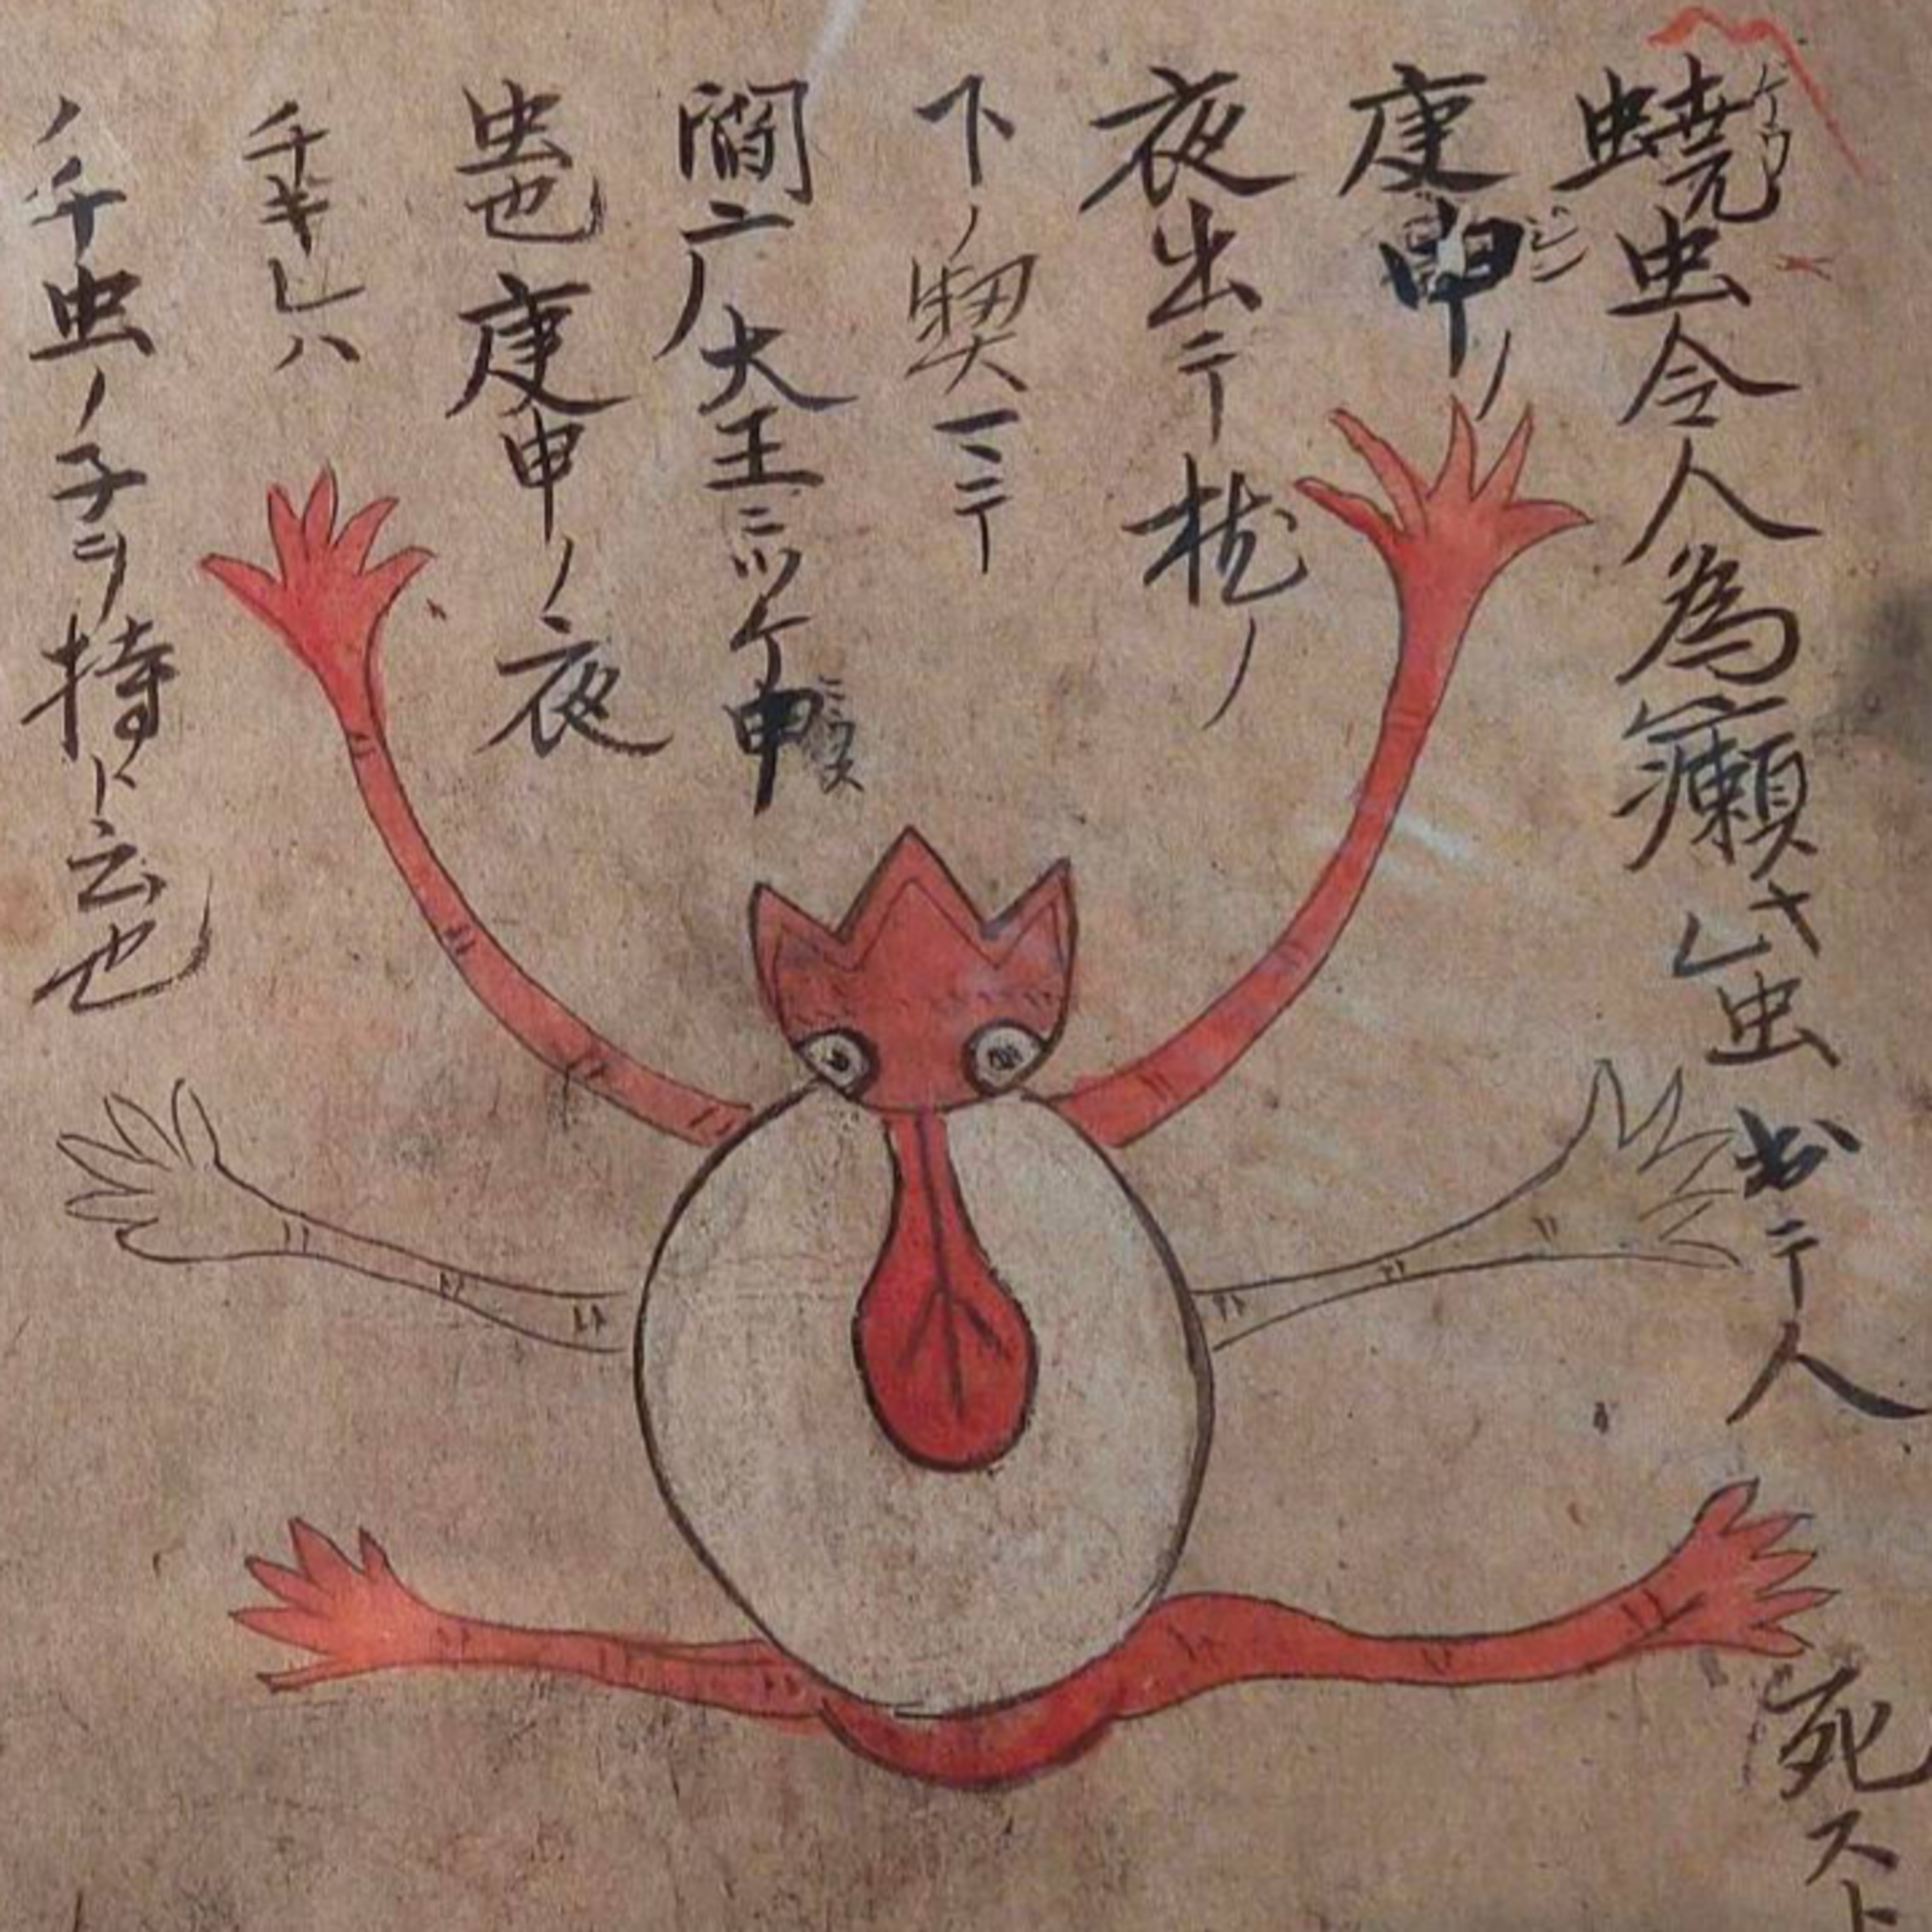 蟯虫令人為癩虫出テ人死スト
庚申ノ
夜出テ枕ノ
下ノ契
閻广ノ大王ニツケ申
虫也庚申ノ夜
チギレハ
ノ千虫ノ子ヲ持ト云也